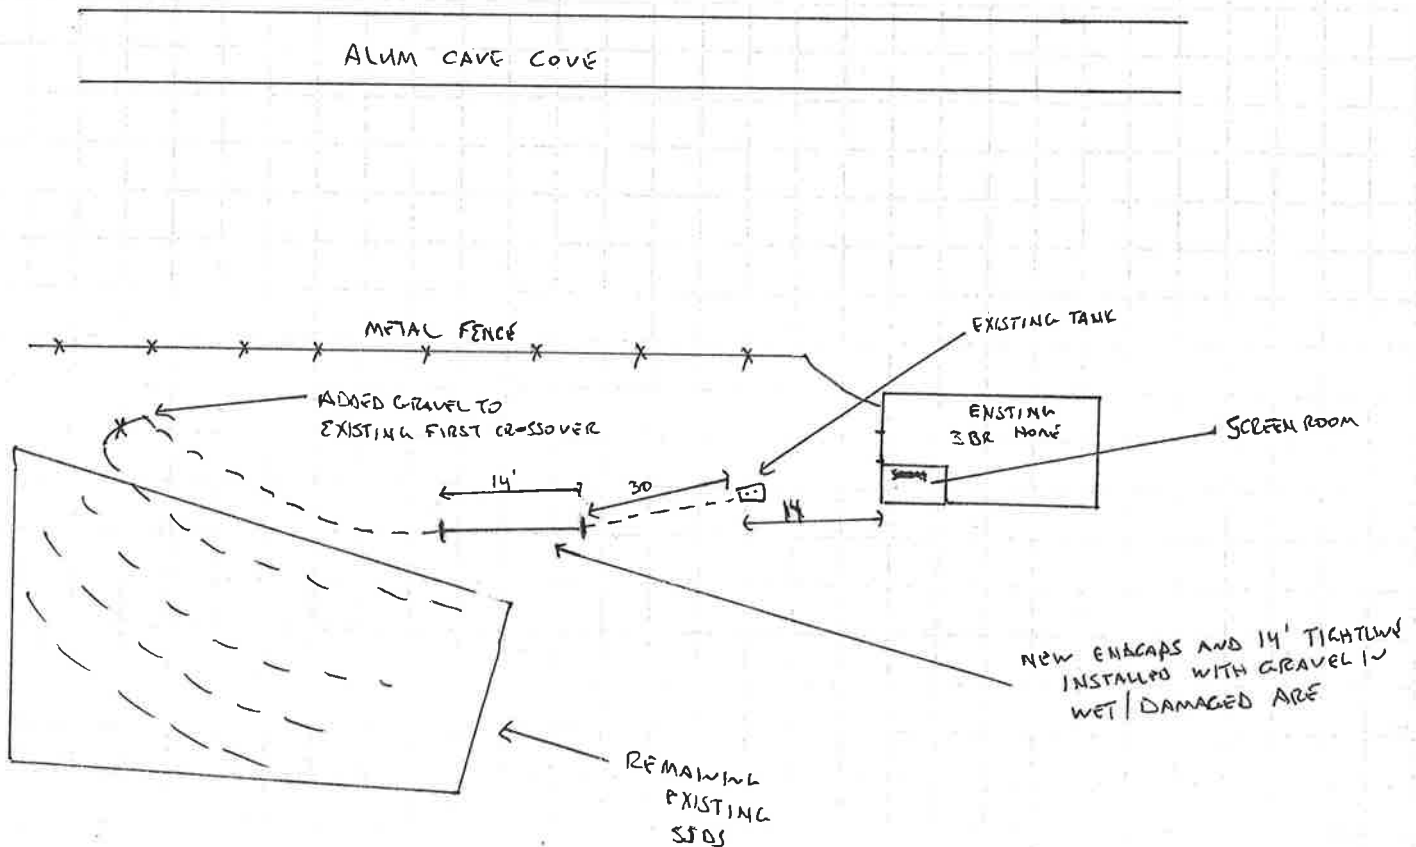 ALUM CAVE COVE
METAL FENCE
EXISTING TANK
ADDED GRAVEL TO
EXISTING FIRST CROSSOVER
ENSTING
3BR HOME
SCREEN ROOM
14'
30
14
NEW ENDCAPS AND 14' TIGHTLINE
INSTALLED WITH GRAVEL IN
WET/DAMAGED ARE
REMAINING
EXISTING
SSDS